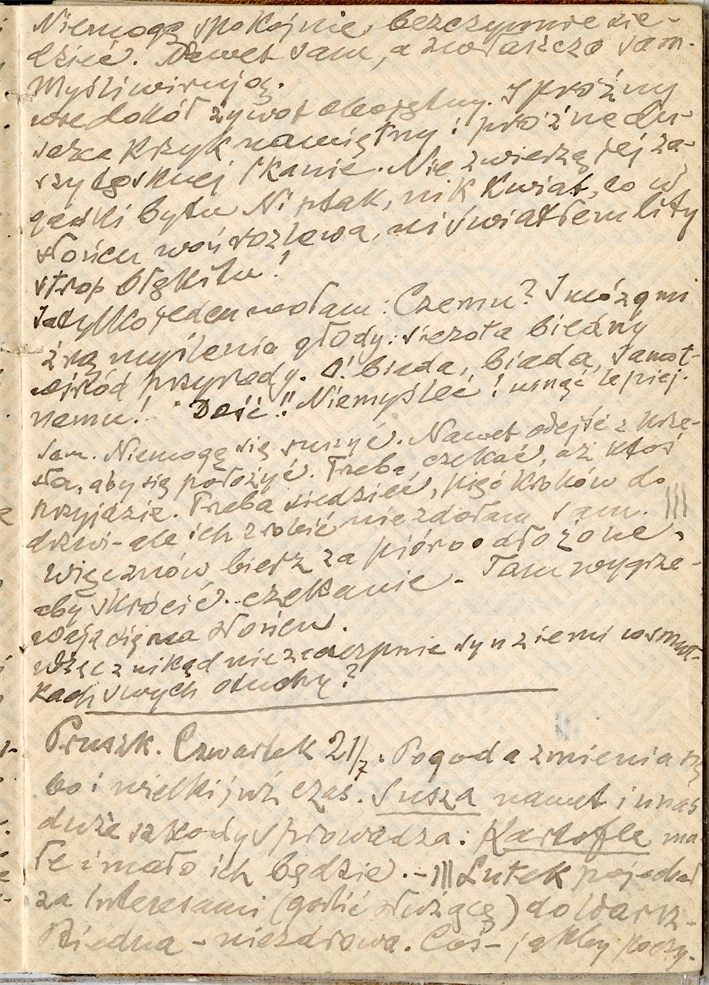 Niemogę spokojnie, bezczynnie sie-
dzieć. Nawet sam, a zwłaszcza sam.
Myśli wirują.
wkokół żywot obojętny. I próżny
serca krzyk namiętny i próżne du-
szy tęsknej łkanie. Nie zwierzą jej za-
gadki bytu Ni ptak, nik kwiat, co w
słońcu woń rozlewa, ni światłem lity
strop błękitu!
Ja tylko jeden wołam: Czemu? I mózg mi
żrą myślenia głody: sierota biedny
wśród przyrody. O! biada, biada, samot-
nemu! Dość!! Niemyśleć! usnąć lepiej.
Sam. Niemogę się ruszyć. Nawet odejść z krze-
sła, aby się położyć. Trzeba czekać, aż ktoś
przyjdzie. Trzeba siedzieć, pięć kroków do
drzwi - ale ich zrobić nie zdołam sam.
Więc znów bierz za pióro odłożone,
aby skrócić czekanie. - Tam wygrze-
wają się na słońcu.
Więc znikąd nie zaczerpnie syn ziemi w smut-
kach swych otuchy?
Pruszk. Czwartek 21/7. Pogoda zmienia się
bo i wielki już czas. Susza nawet i u nas
duże szkody sprowadza: Kartofle ma-
łe i mało ich będzie. - Lutek pojechał
za interesami (godić służącę) do Warsz-
Biedna - niezdrowa. Coś - jakby poczy-